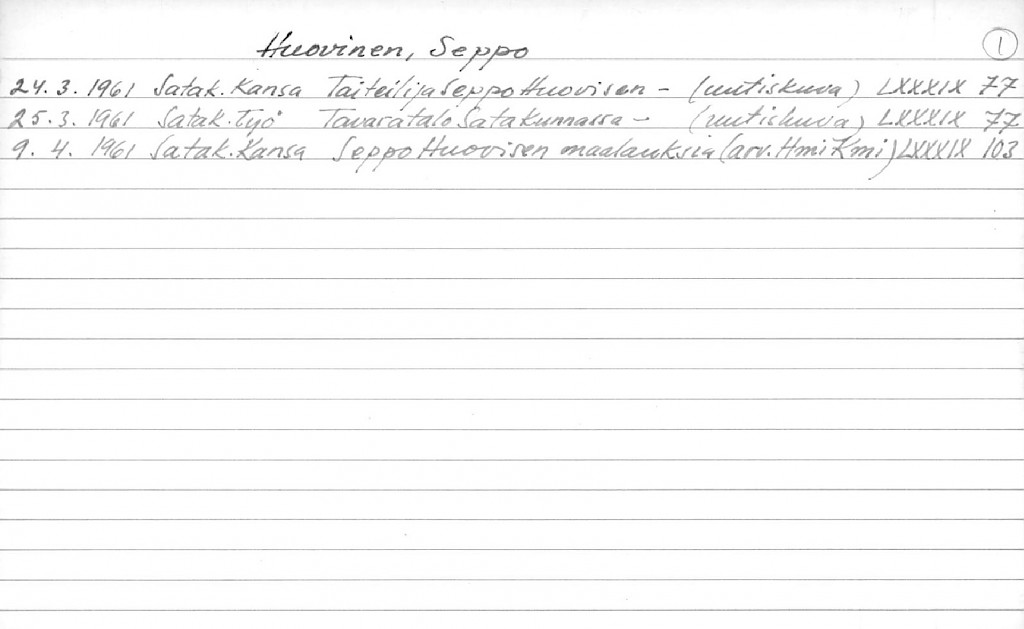 Huovinen, Seppo 1
24.3.1961 Satak. Kansa Taiteilija Seppo Huovisen - (uutiskuva) LXXXIX 77
25.3.1961 Satak. Työ Tavaratalo Satakunnassa - (uutiskuva) LXXXIX 77
9.4.1961 Satak. Kansa Seppo Huovisen maalauksia (arv. Hmi Kmi) LXXXIX 103